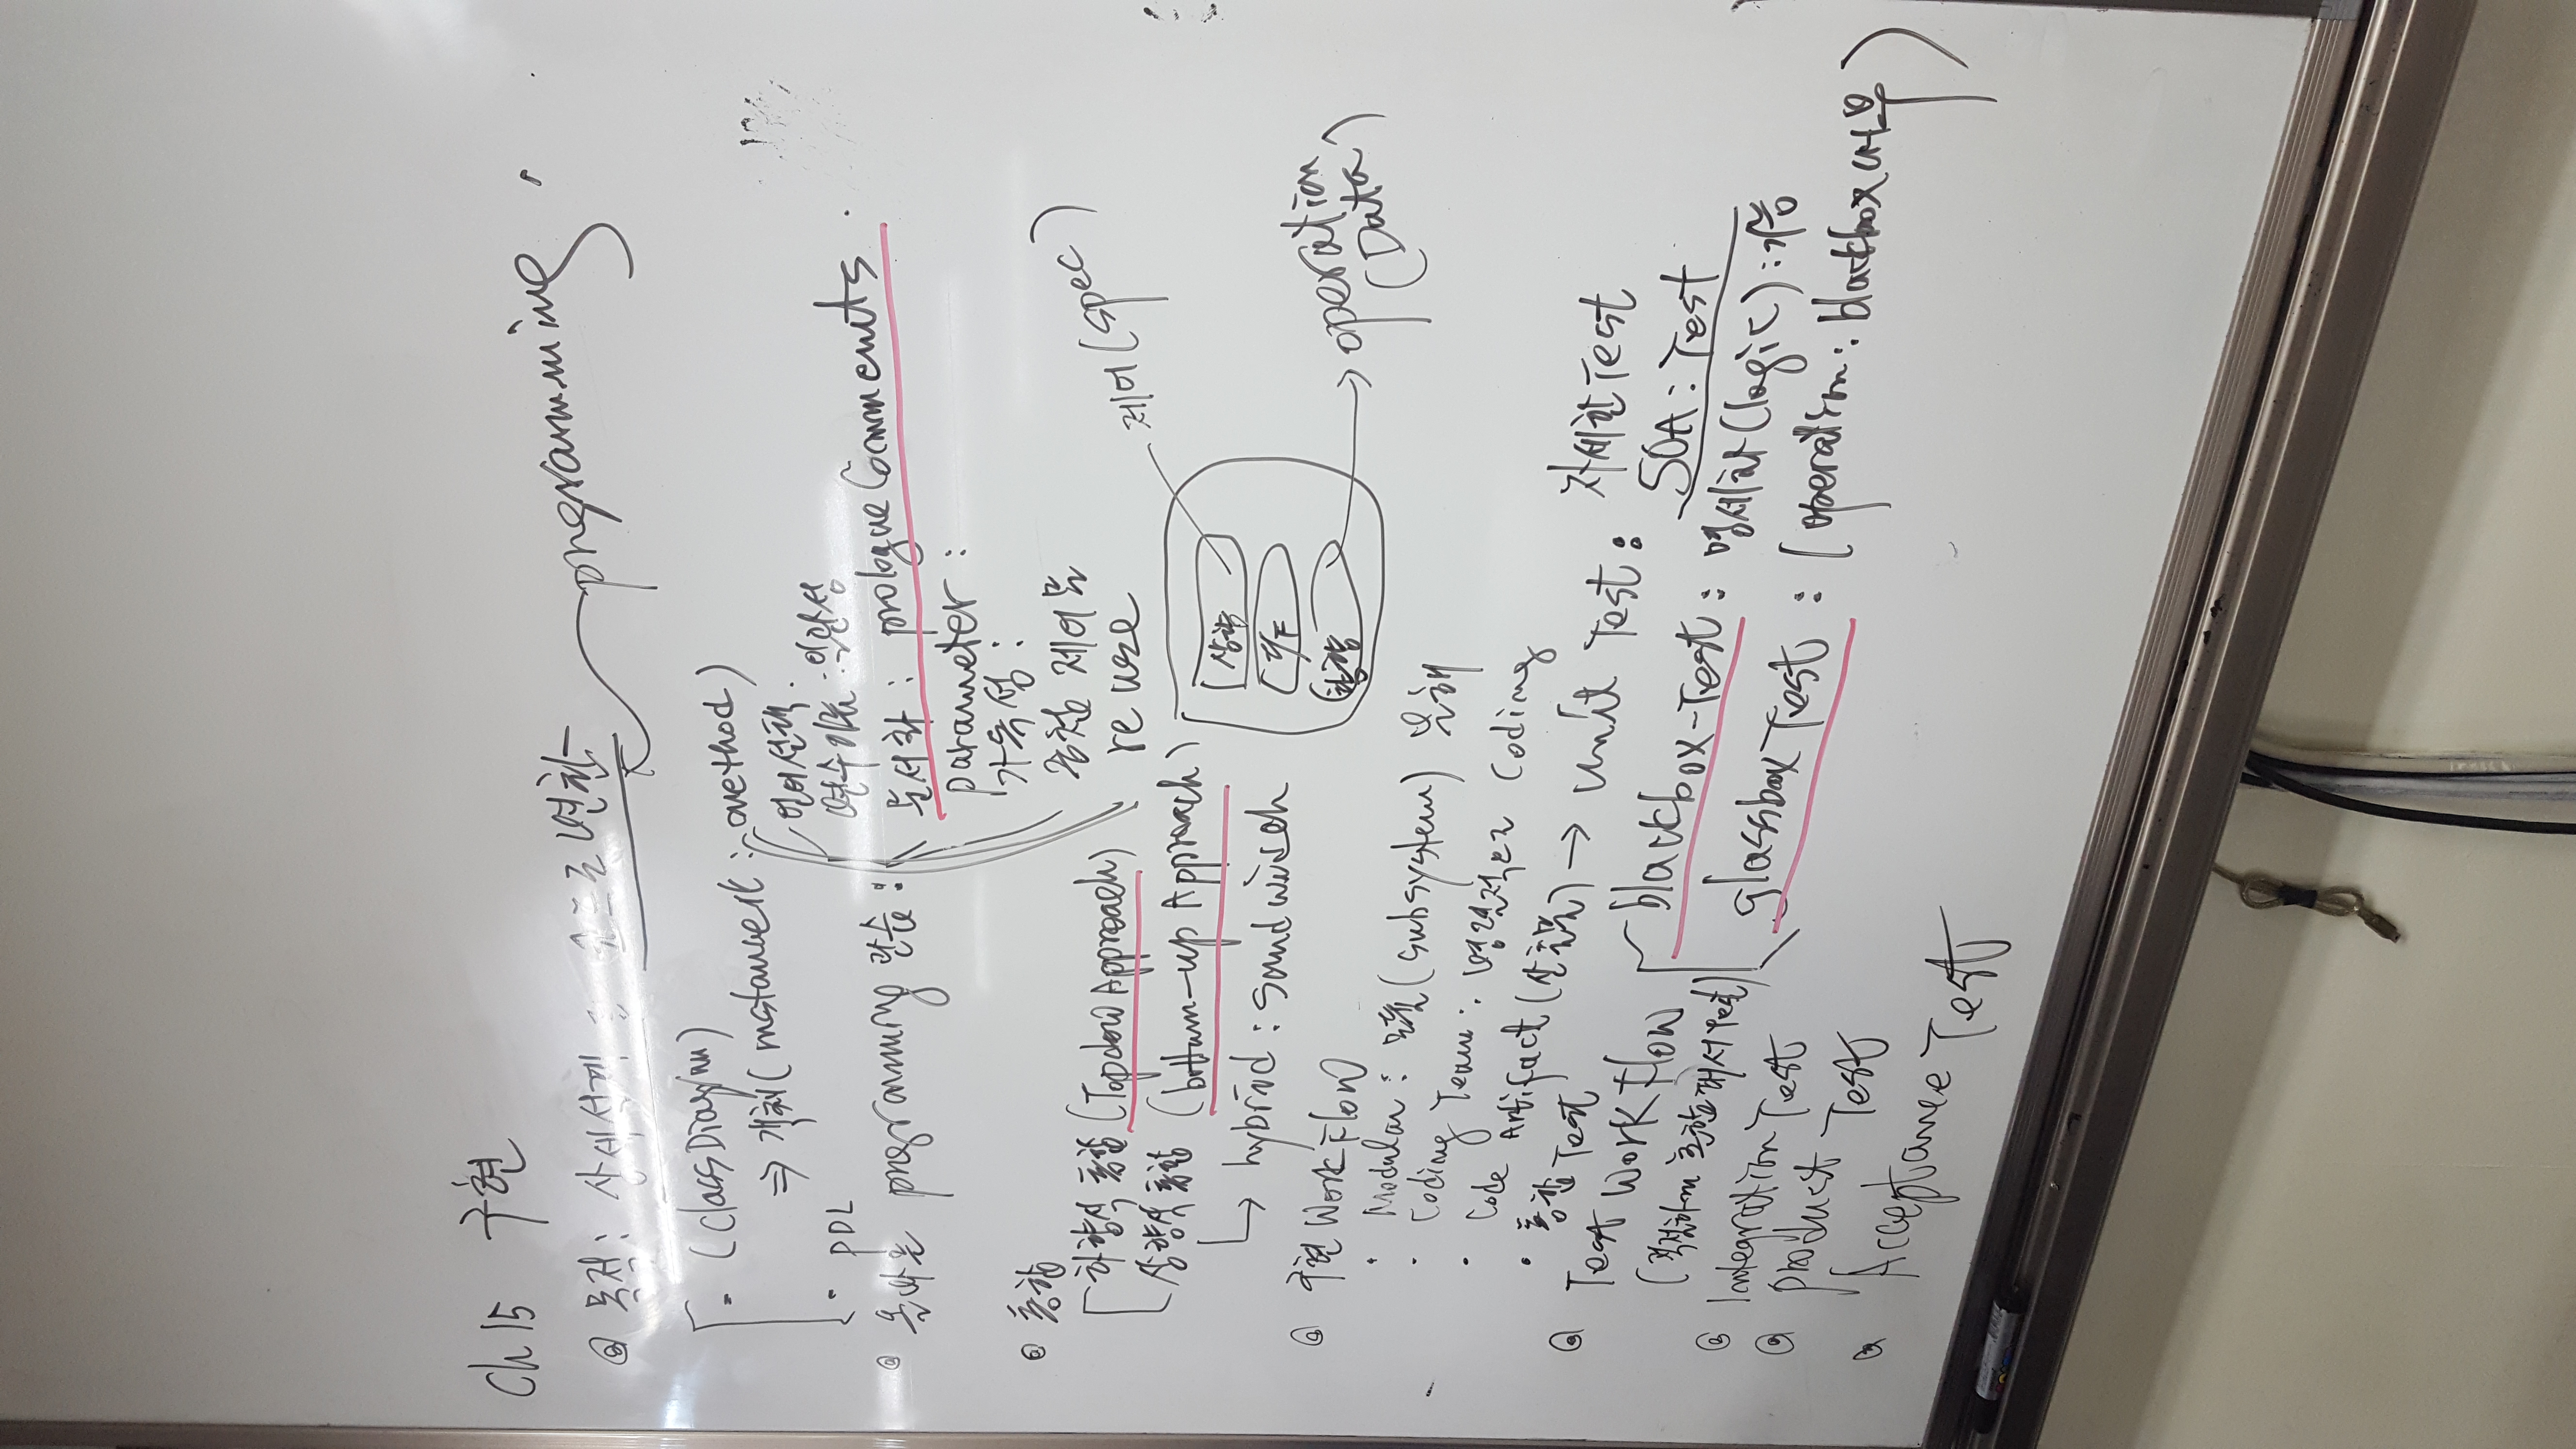 Ch 15 구현
목적: 상세설계 : 코드로 변환
programming
(classDiagram)
⇒ 객체( : method)
PDL
올바른 programming 관습 :
언어선택
변수이름 : 일관성
문서화 : prologue Comments
parameter :
가독성 :
중첩 제어문
reuse
통합
하향식 통합 (Topdow Approach)
상향식 통합 (bottum-up Approach)
hybrid : Sandwisch
제어(spec)
상향
I/F
하향
operation
(Data)
구현 WorkFlow
Modular : 모듈(subsystem) 분해
Coding Team : 병렬적으로 Coding
Code Artifact(산출물) → unit Test : 자세한 Test
통합 Test
SQA : Test
Test WorkFlow
(적절하게 혼합해서 Test)
blackbox-Test : 명세화(logic) : 기능
glassbox Test : (operation : blackbox 내부)
Integration Test
product Test
Acceptance Test